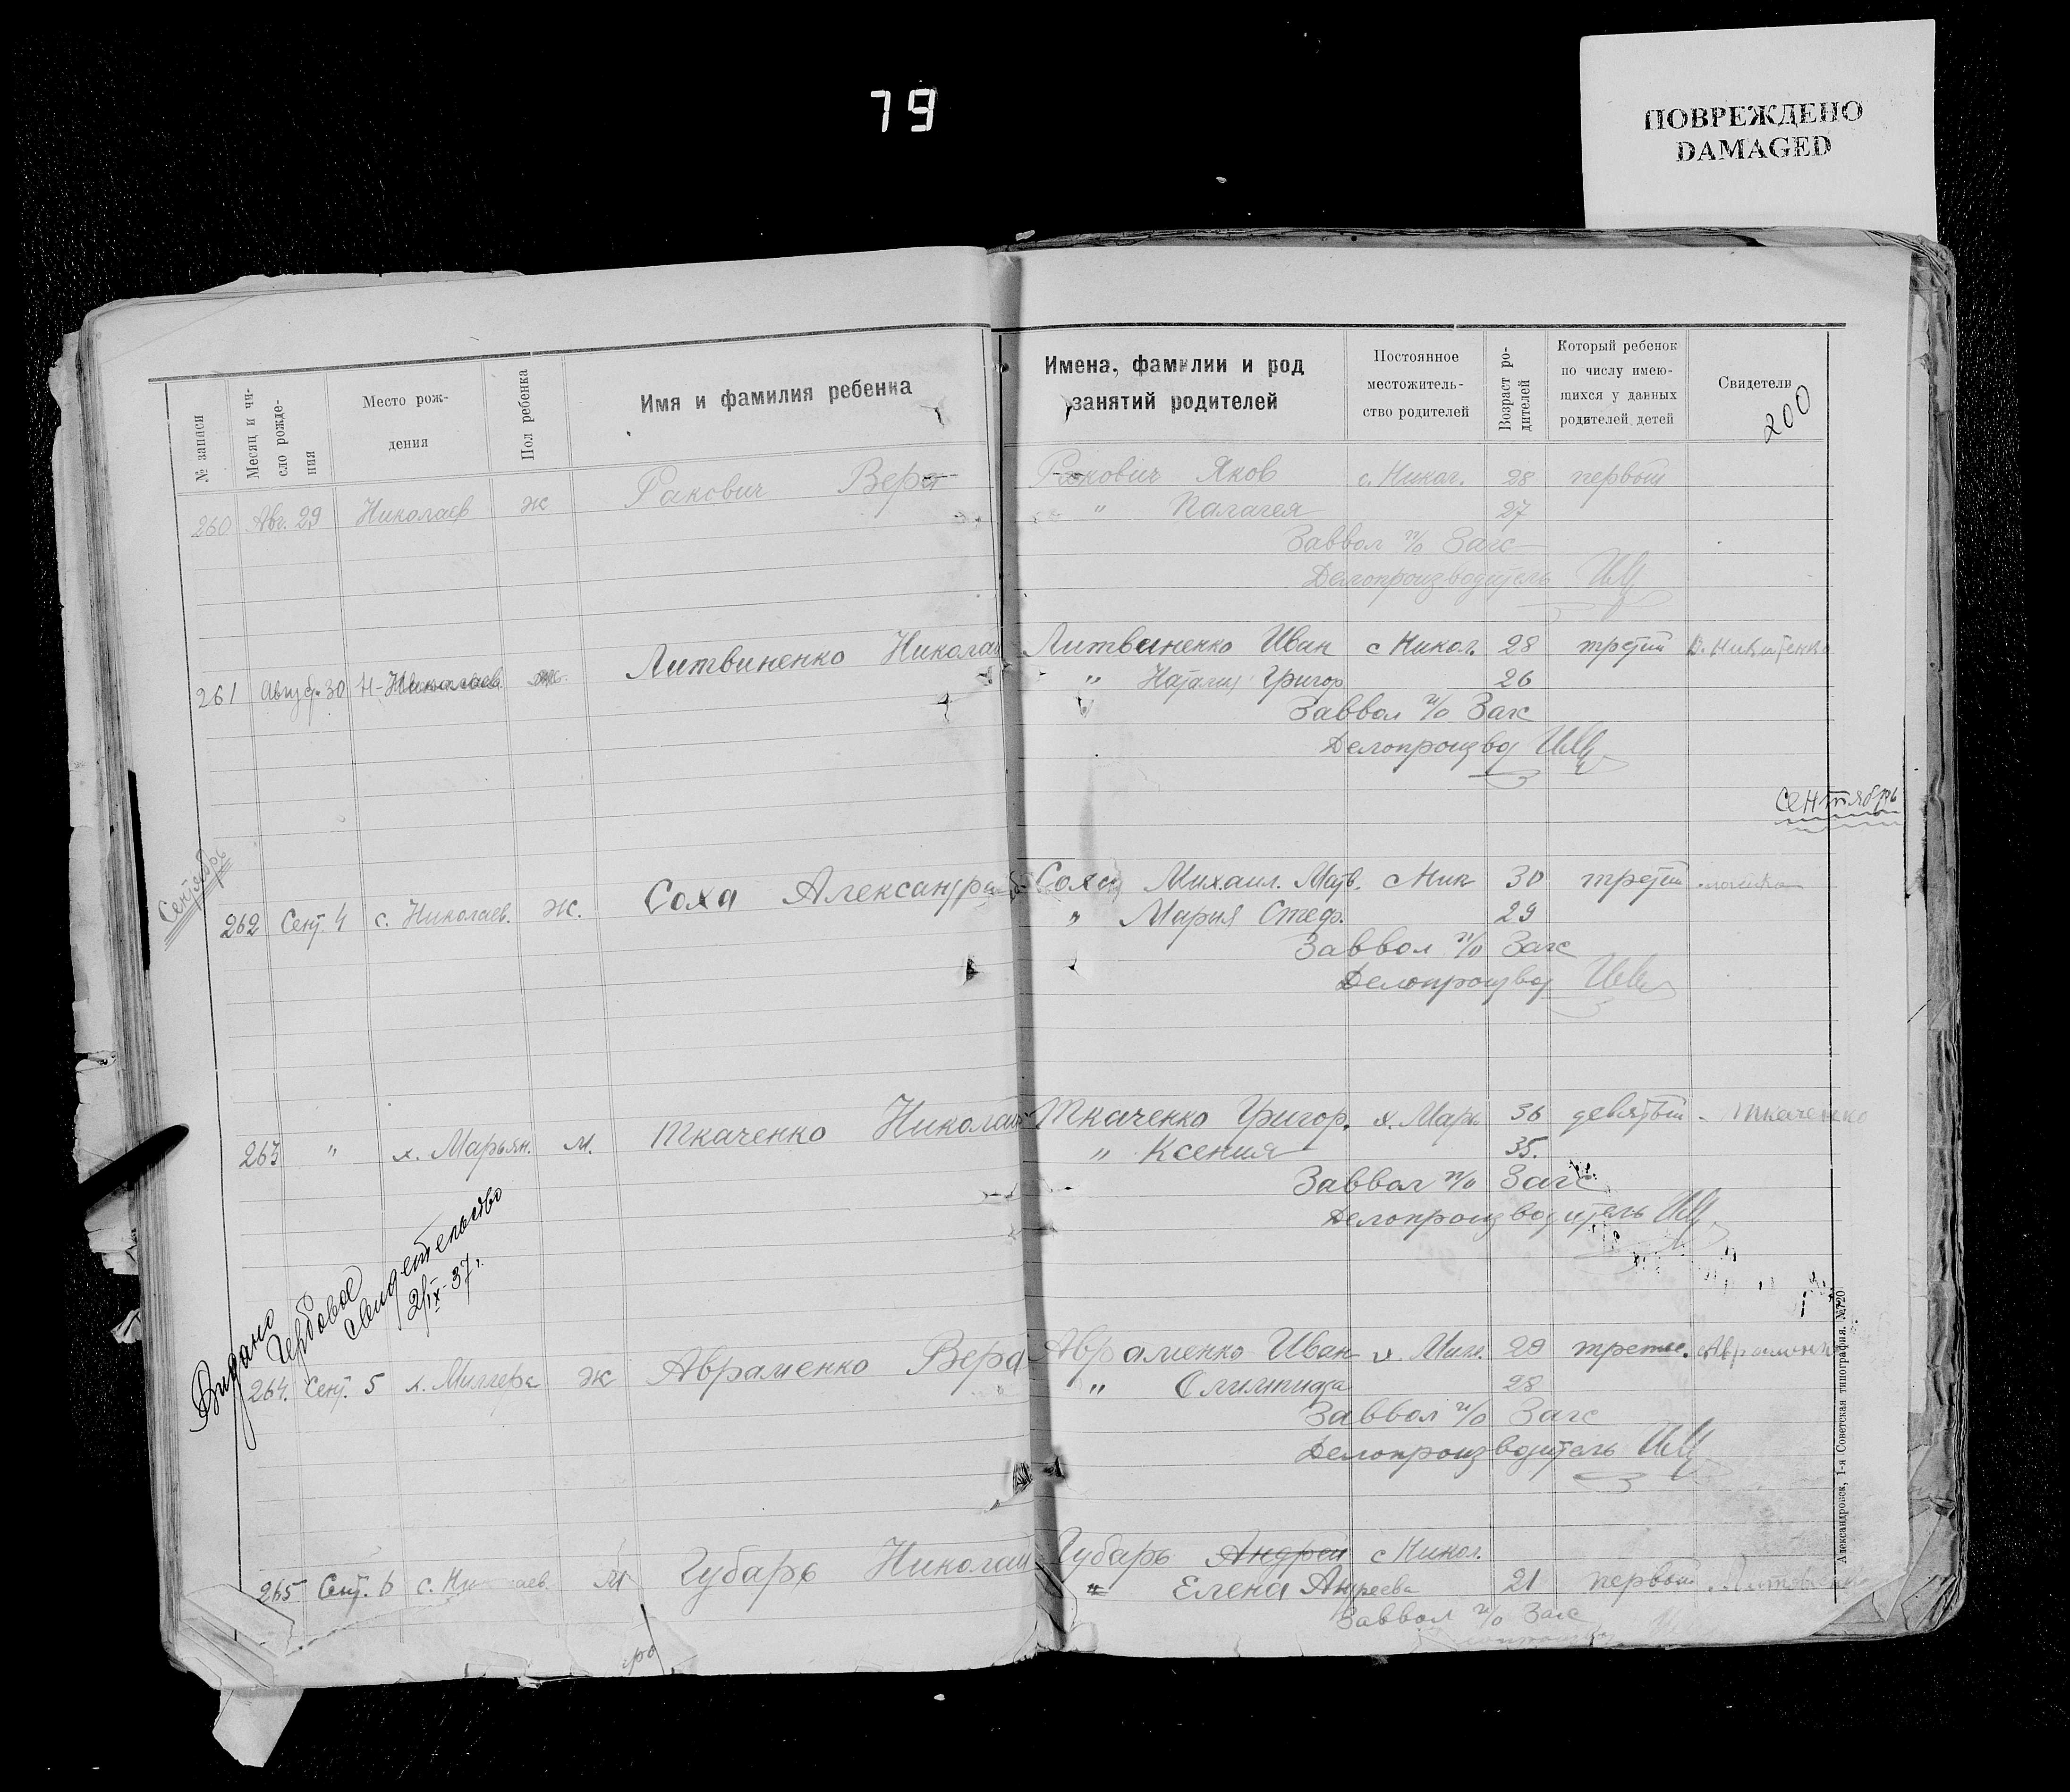 79
ПОВРЕЖДЕНО
DAMAGED
№ записи
Месяц и чи-
сло рожде-
ния
Место рож-
дения
Пол ребенка
Имя и фамилия ребенка
Имена, фамилии и род
занятий родителей
Постоянное
местожитель-
ство родителей
Возраст ро-
дителей
Который ребенок
по числу имею-
щихся у данных
родителей детей
Свидетели
200
260 Авг. 29 Николаев ж Ракович Вера Ракович Яков с. Никол. 28 первый
" Палагея 27
Заввол п/о Загс
Делопроизводитель
261 Август 30 Н-Николаев Литвиненко Николай Литвиненко Иван с Никол. 28 третий В. Никитенко
" Наталия Григор 26
Заввол п/о Загс
Делопроизвод
Сентябрь
Сентябрь
262 Сент. 4 с. Николаев. ж. Соха Александра Соха Михаил Матв. с Ник 30 третий
" Мария Стеф. 29
Заввол п/о Загс
Делопроизвод
263 " х. Марьян. м. Ткаченко Николай Ткаченко Григор. х. Марь 36 девятый Ткаченко
" Ксения 35.
Заввол п/о Загс
Делопроизводитель
Видано
Гербовое
свидетельство
2/IX-37 г.
264. Сент. 5 х. Миллера ж Авраменко Вера Авраменко Иван х. Милл. 29 третье. Авраменко
" Олимпиада 28
Заввол п/о Загс
Делопроизводитель
265 Сент. 6 с. Ни аев. м Губарь Николай Губарь Андрей с Никол.
" Елена Андреева 21 первый
Заввол п/о Загс
Александровск, 1-я Советская типография. №720